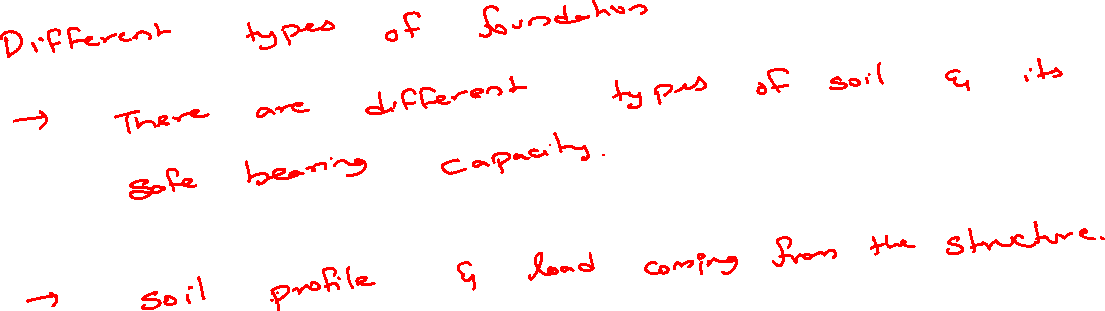 Different types of foundation
→ There are different types of soil & its
safe bearing capacity.
→ soil profile & load coming from the structure.